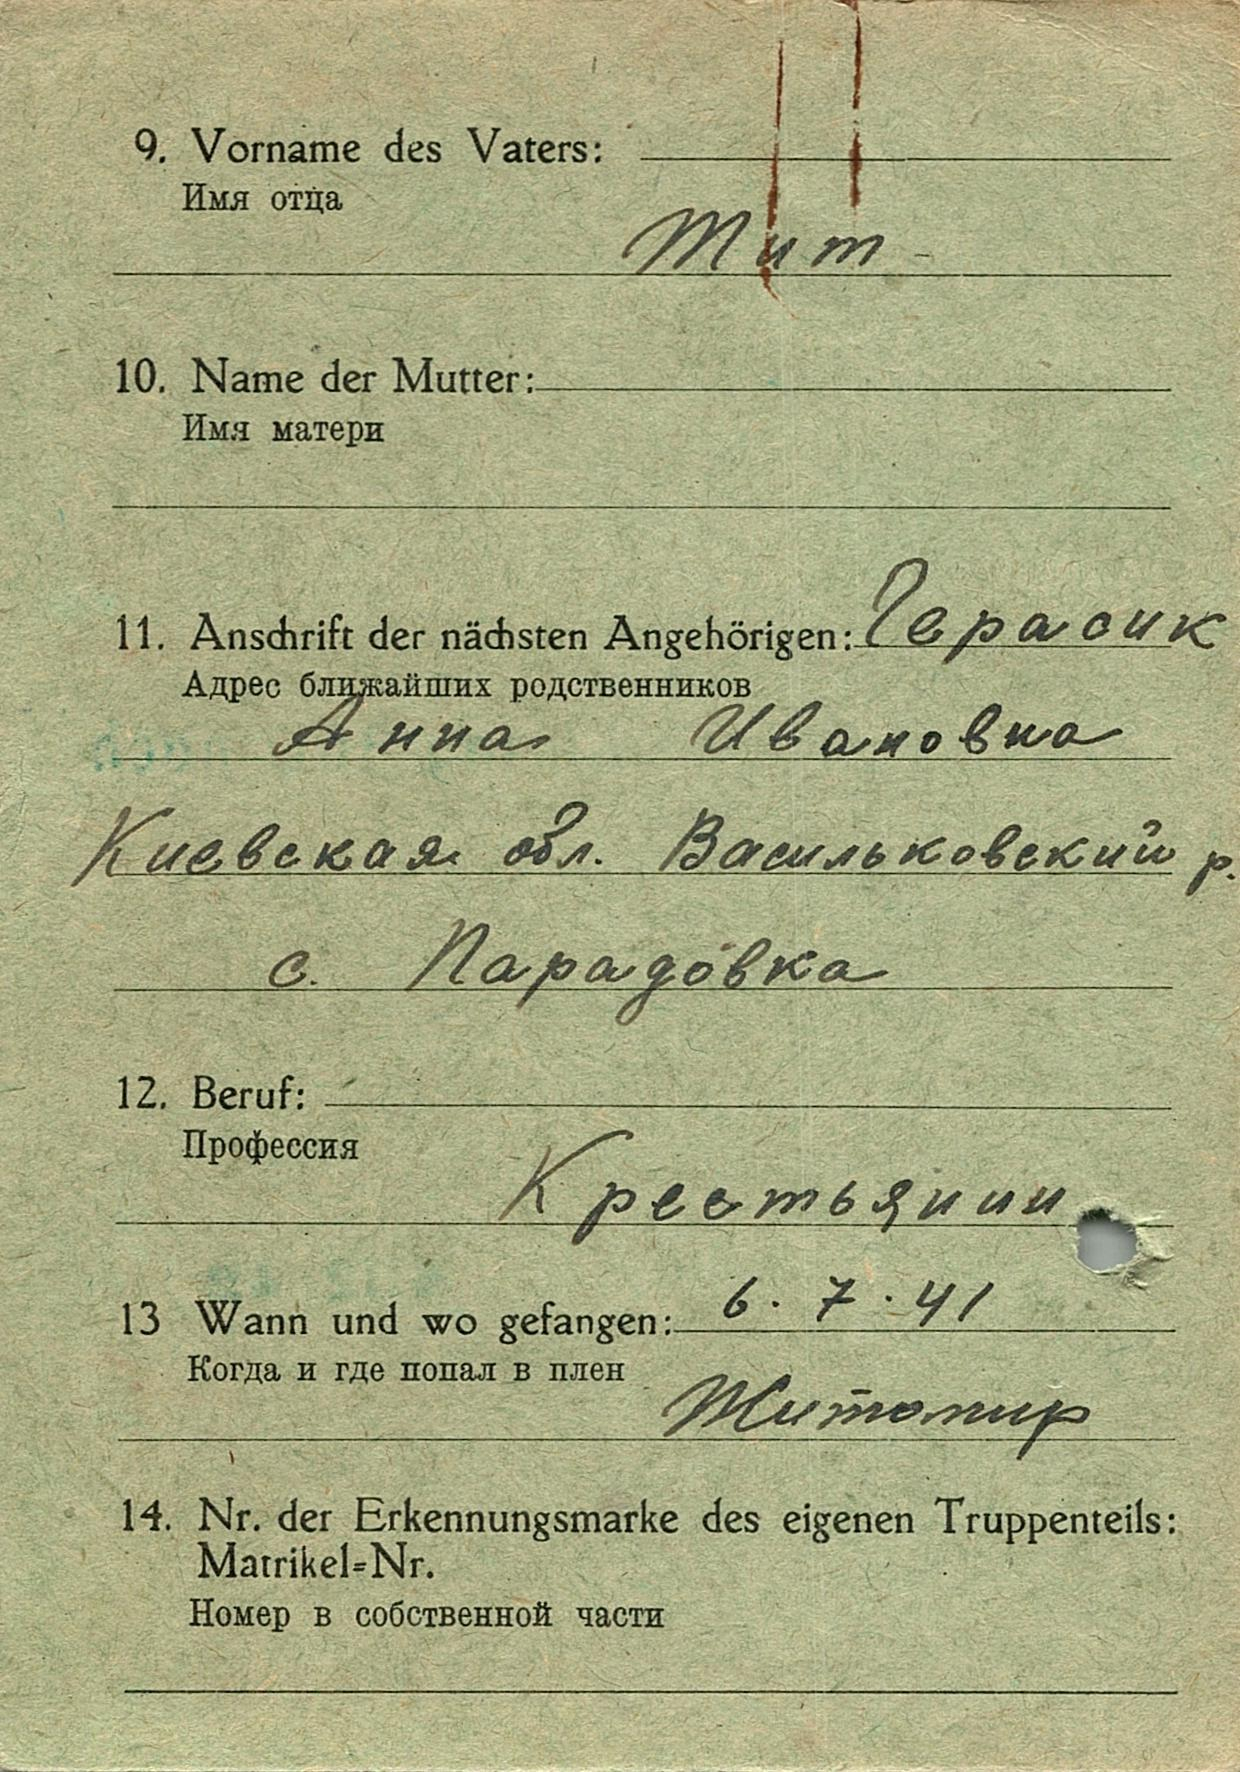 9. Vorname des Vaters:
Имя отца
Тит -
10. Name der Mutter:
Имя матери
11. Anschrift der nächsten Angehörigen: Герасик
Адрес ближайших родственников
Анна Ивановна
Киевская обл. Васильковский р.
с. Парадовка
12. Beruf:
Профессия
Крестьянин
13 Wann und wo gefangen: 6. 7. 41
Когда и где попал в плен
Житомир
14. Nr. der Erkennungsmarke des eigenen Truppenteils:
Matrikel=Nr.
Номер в собственной части